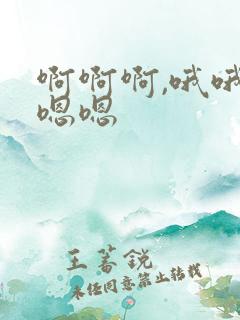 啊啊啊,哦哦
嗯嗯
王蓄锐
未经同意禁止转载